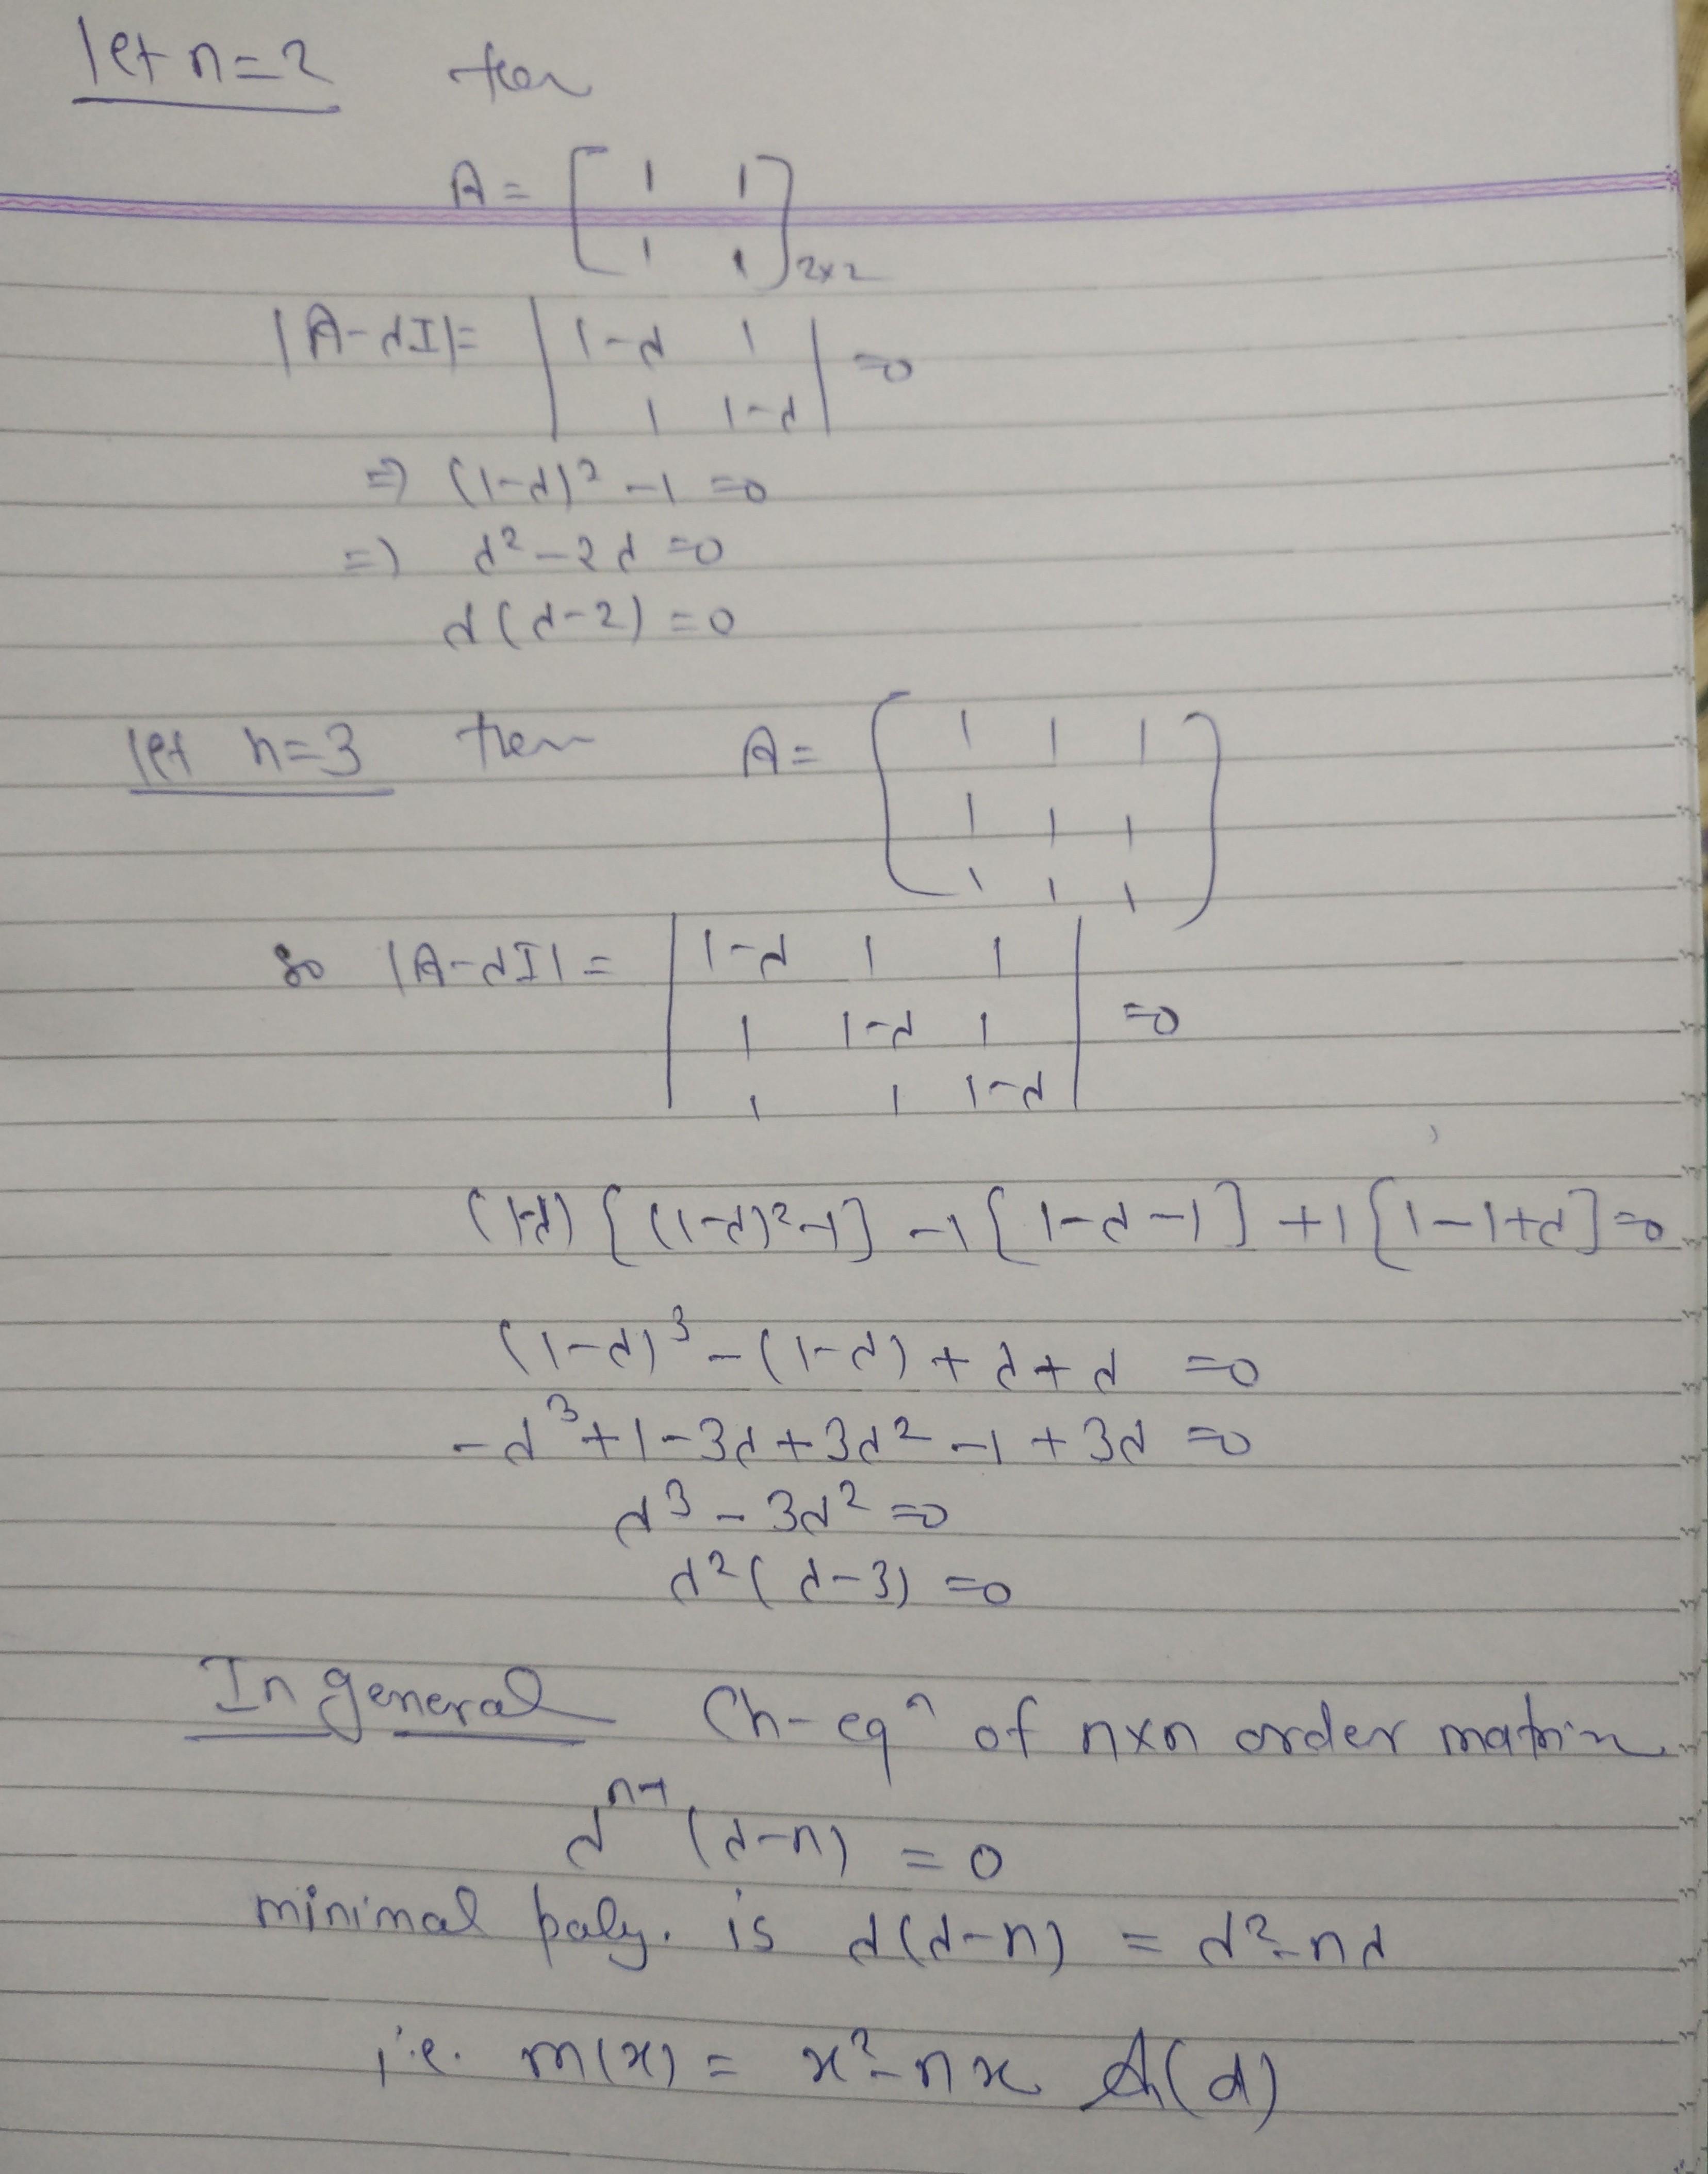 let n=2 then
A = [ 1 1
1 1 ]2×2
|A-λI|= | 1-λ 1
1 1-λ | =0
⇒ (1-λ)² -1 =0
⇒ λ² -2λ =0
λ(λ-2) =0
let n=3 then A = [ 1 1 1
1 1 1
1 1 1 ]
so |A-λI| = | 1-λ 1 1
1 1-λ 1 | =0
1 1 1-λ
(1-λ) [(1-λ)²-1] -1[1-λ-1] +1[1-1+λ] =0
(1-λ)³ -(1-λ) + λ+λ =0
-λ³+1-3λ+3λ² -1+3λ =0
λ³ - 3λ² =0
λ²(λ-3) =0
In general Ch-eqⁿ of n×n order matrix
λⁿ⁻¹ (λ-n) = 0
minimal poly. is λ(λ-n) = λ²-nλ
i.e. m(x) = x²-nx A(d)